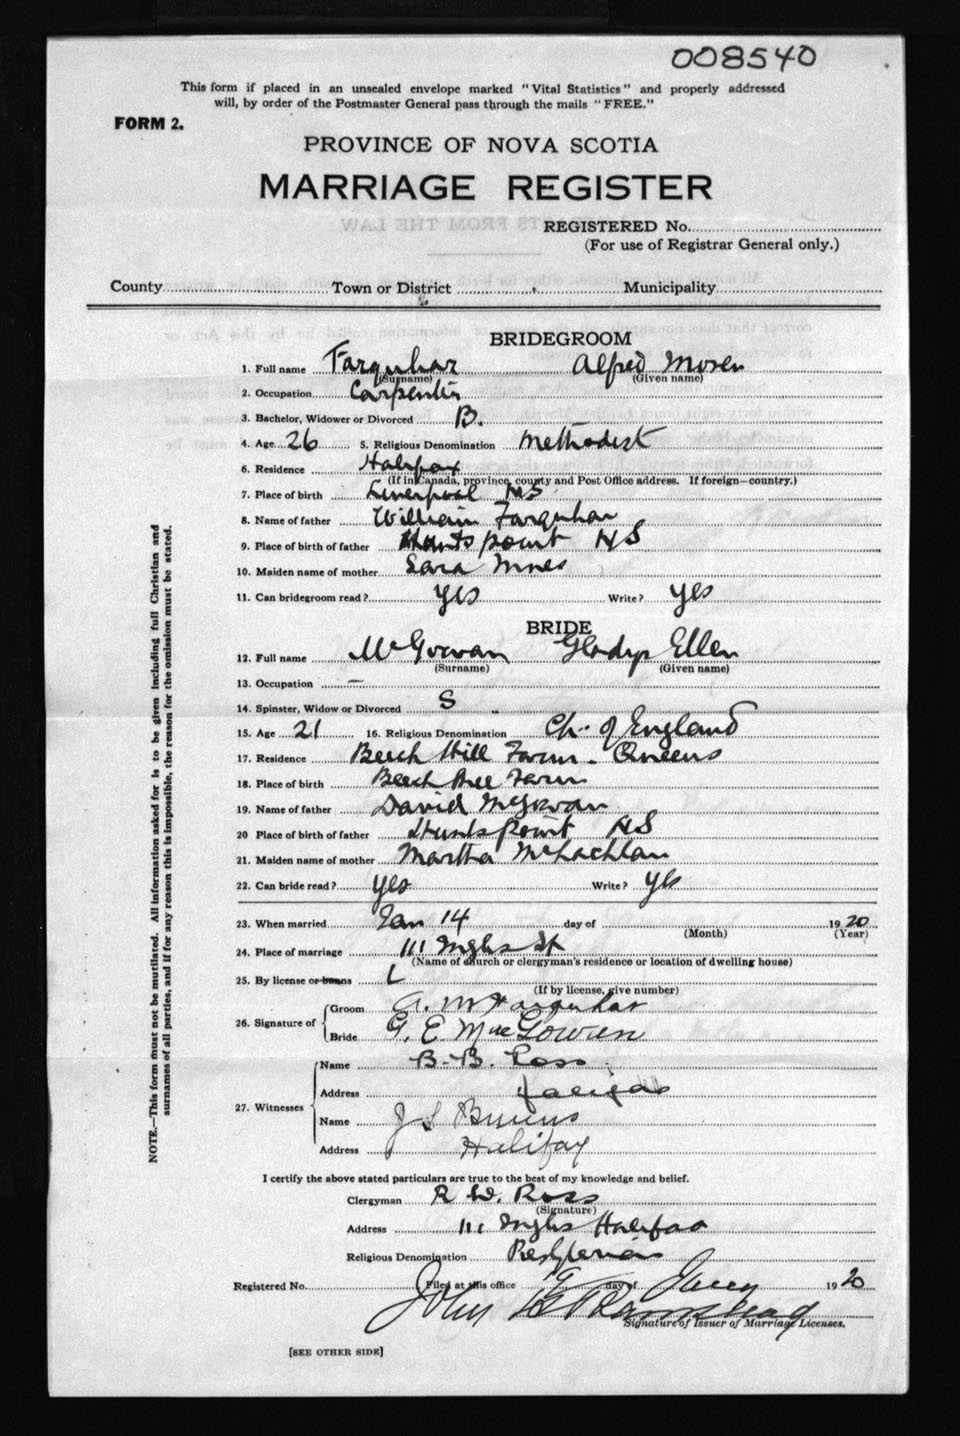 008540
This form if placed in an unsealed envelope marked "Vital Statistics" and properly addressed
will, by order of the Postmaster General pass through the mails "FREE."
FORM 2.
PROVINCE OF NOVA SCOTIA
MARRIAGE REGISTER
REGISTERED No.
(For use of Registrar General only.)
County Town or District Municipality
BRIDEGROOM
1. Full name Farquhar Alfred Mosen
(Surname) (Given name)
2. Occupation Carpenter
3. Bachelor, Widower or Divorced B.
4. Age 26 5. Religious Denomination Methodist
6. Residence Halifax
(If in Canada, province, county and Post Office address. If foreign—country.)
7. Place of birth Liverpool NS
8. Name of father William Farquhar
9. Place of birth of father Hunts point NS
10. Maiden name of mother Sara
11. Can bridegroom read? Yes Write? Yes
BRIDE
12. Full name McGowan Gladys Ellen
(Surname) (Given name)
13. Occupation —
14. Spinster, Widow or Divorced S
15. Age 21 16. Religious Denomination Ch. of England
17. Residence Beech Hill Farm - Queens
18. Place of birth Beech Hill Farm
19. Name of father David McGowan
20 Place of birth of father Hunts Point NS
21. Maiden name of mother Martha McLachlan
22. Can bride read? Yes Write? Yes
23. When married Jan 14 day of 1920
(Month) (Year)
24. Place of marriage 111 Inglis St
(Name of church or clergyman's residence or location of dwelling house)
25. By license or banns L
(If by license, give number)
26. Signature of Groom A. M Farquhar
Bride G. E. MacGowan
27. Witnesses Name B. B. Ross
Address Halifax
Name J S
Address Halifax
I certify the above stated particulars are true to the best of my knowledge and belief.
Clergyman R W. Ross
(Signature)
Address 111 Inglis Halifax
Religious Denomination Presbyterian
Registered No. Filed at this office day of 1920
John
Signature of Issuer of Marriage Licenses.
[SEE OTHER SIDE]
NOTE.—This form must not be mutilated. All information asked for is to be given including full Christian and
surnames of all parties, and if for any reason this is impossible, the reason for the omission must be stated.